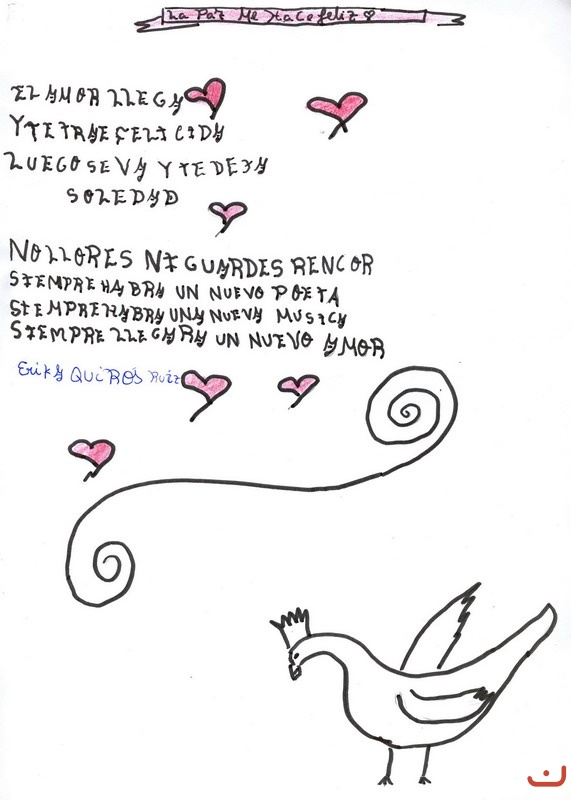 La Paz Me Hace feliz
EL AMOR LLEGA
Y TE TRAE FELICIDA
LUEGO SE VA Y TE DEJA
SOLEDAD
NO LLORES NI GUARDES RENCOR
SIEMPRE HABRA UN NUEVO POETA
SIEMPRE HABRA UNA NUEVA MUSICA
SIEMPRE LLEGARA UN NUEVO AMOR
Erika QUIROS Ruiz